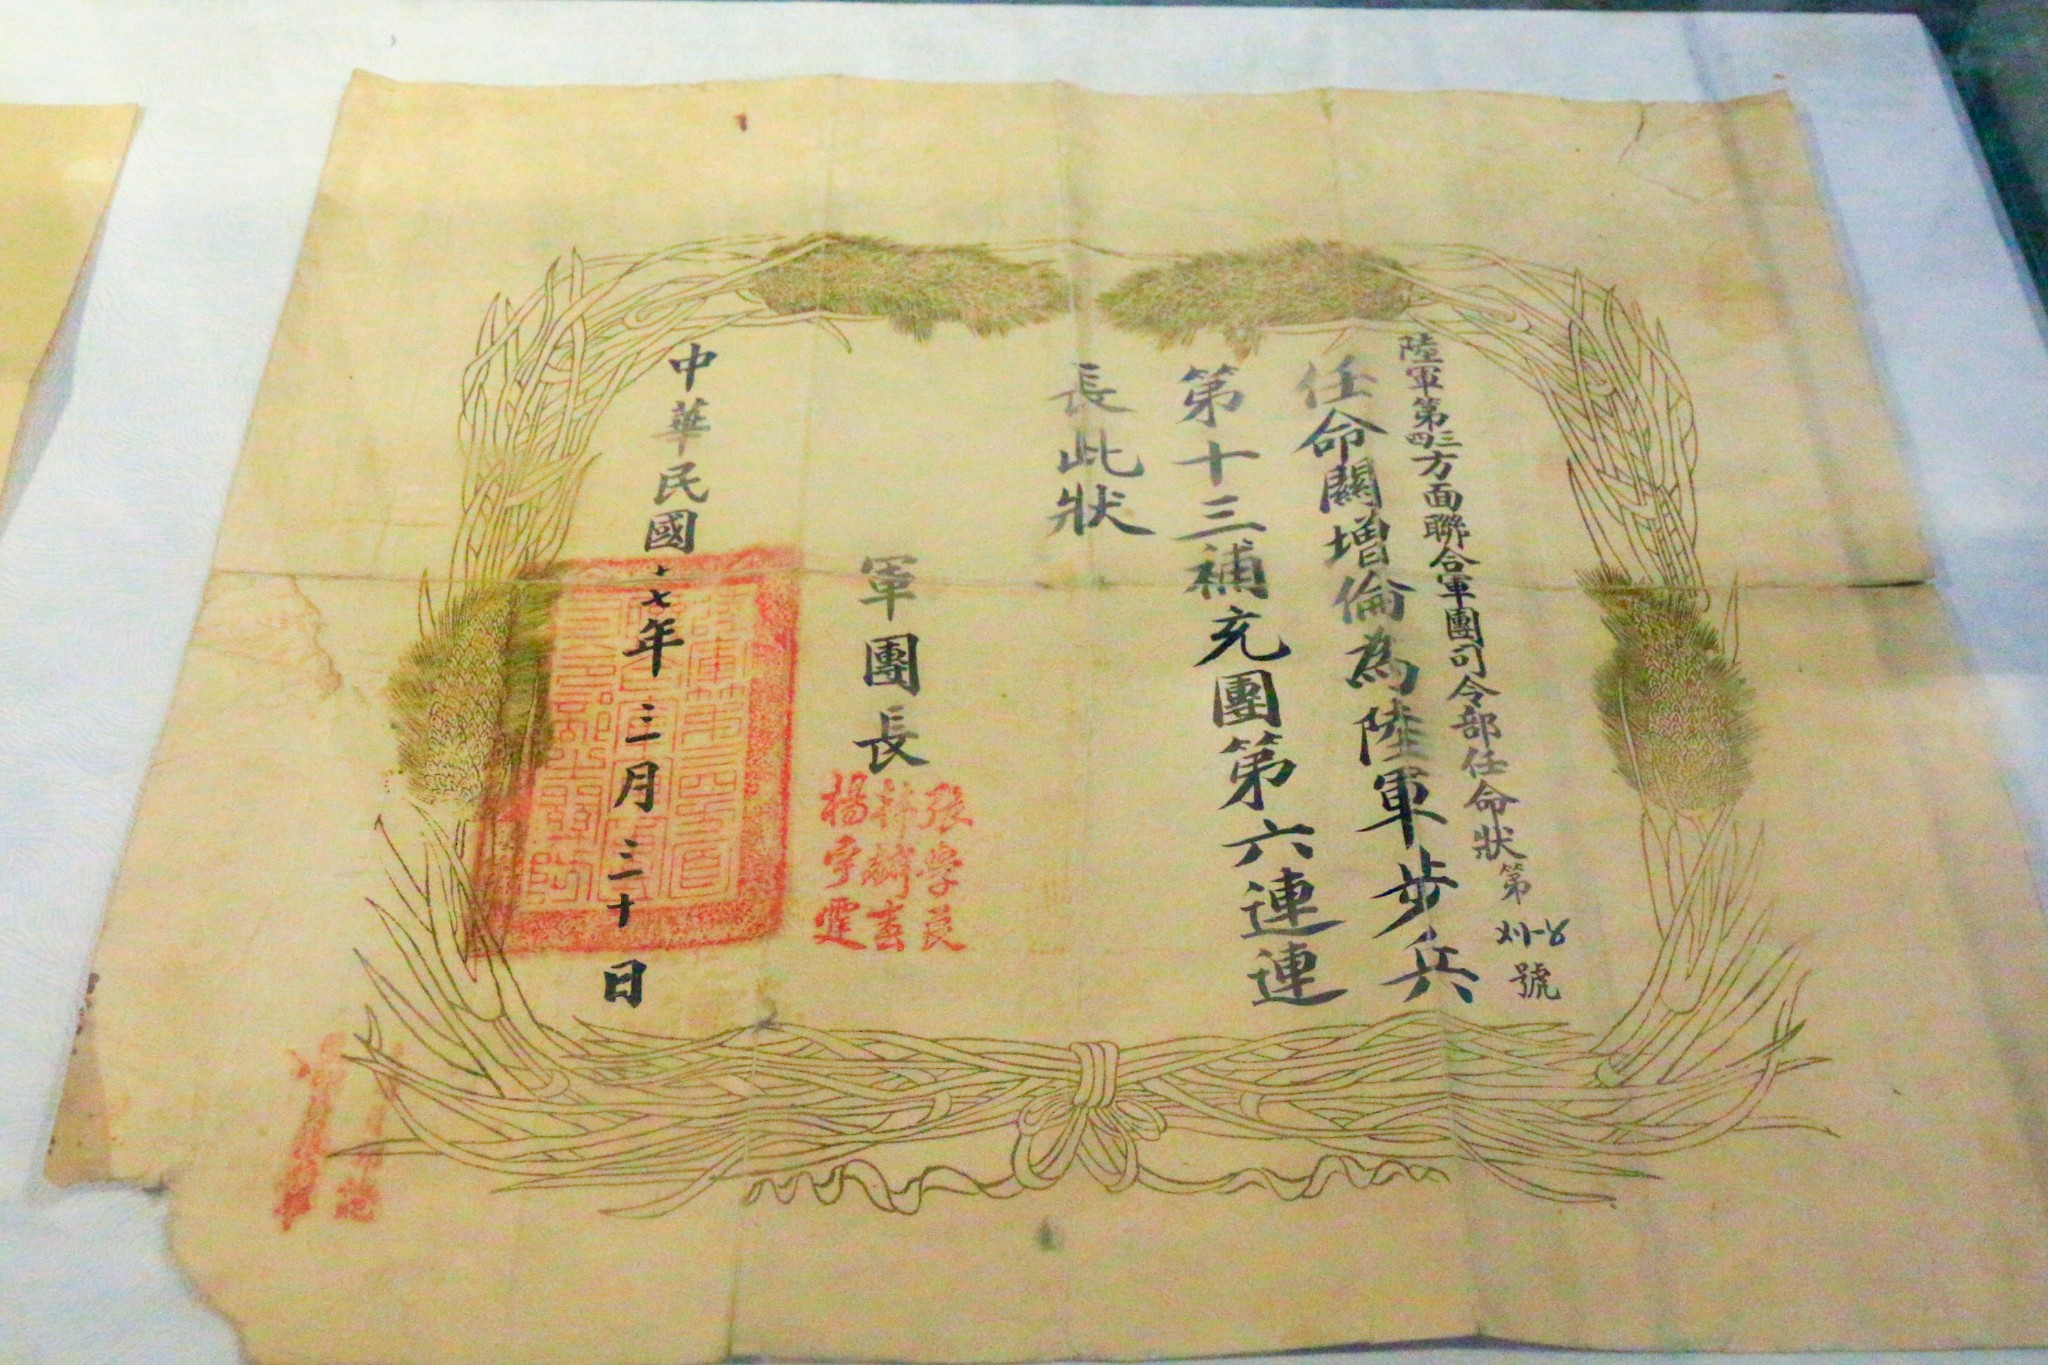 陸軍第三四方面聯合軍團司令部任命狀第號
任命關增倫為陸軍步兵
第十三補充團第六連連
長此狀
軍團長
張學良
韓麟春
楊宇霆
中華民國十七年三月三十日